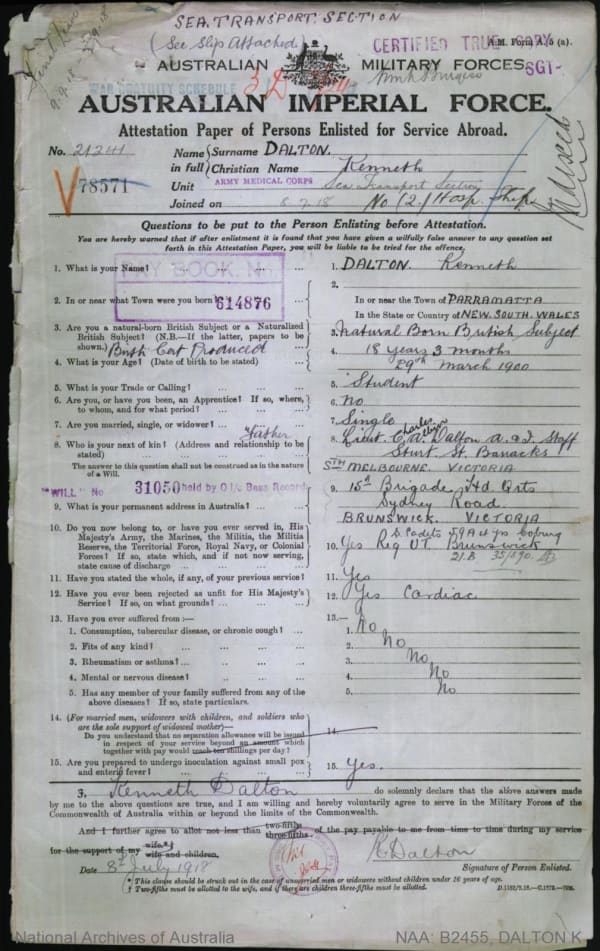 SEA TRANSPORT SECTION
(See Slip Attached)
CERTIFIED TRUE COPY
A.M. Form A/5 (a).
AUSTRALIAN MILITARY FORCES.
SG1-
WAR GRATUITY SCHEDULE
AUSTRALIAN IMPERIAL FORCE.
Attestation Paper of Persons Enlisted for Service Abroad.
No. 21241
Name in full { Surname DALTON.
Christian Name Kenneth
78571
Unit ARMY MEDICAL CORPS Sea Transport Section
Joined on 8.7.18 No (2) Hosp. Ship
Indexed
Questions to be put to the Person Enlisting before Attestation.
You are hereby warned that if after enlistment it is found that you have given a wilfully false answer to any question set
forth in this Attestation Paper, you will be liable to be tried for the offence.
PAY BOOK. No.
614876
1. What is your Name? ... 1. DALTON. Kenneth
2. In or near what Town were you born? ... 2. In or near the Town of PARRAMATTA
In the State or Country of NEW SOUTH WALES
3. Are you a natural-born British Subject or a Naturalized
British Subject? (N.B.—If the latter, papers to be
shown.) Birth Cert Produced ... 3. Natural Born British Subject
4. What is your Age? (Date of birth to be stated) ... 4. 18 years 3 months
29th March 1900
5. What is your Trade or Calling? ... 5. Student
6. Are you, or have you been, an Apprentice? If so, where,
to whom, and for what period? ... 6. No
7. Are you married, single, or widower? ... 7. Single
Father
8. Who is your next of kin? (Address and relationship to be
stated) ... 8. Lieut. C. A. Dalton A. & I. Staff
Charles
Sturt. St. Barracks
STH MELBOURNE. VICTORIA
The answer to this question shall not be construed as in the nature
of a Will.
"WILL" No 31050 held by O i/c Base Records
9. What is your permanent address in Australia? ... 9. 15th Brigade Hd. Qrts
Sydney Road.
BRUNSWICK. VICTORIA
10. Do you now belong to, or have you ever served in, His
Majesty's Army, the Marines, the Militia, the Militia
Reserve, the Territorial Force, Royal Navy, or Colonial
Forces? If so, state which, and if not now serving,
state cause of discharge ... 10. Yes S. Cadets 59 A 4 yrs Coburg
Reg UT Brunswick
21.B 35/890.
11. Have you stated the whole, if any, of your previous service? 11. Yes
12. Have you ever been rejected as unfit for His Majesty's
Service? If so, on what grounds? ... 12. Yes Cardiac
13. Have you ever suffered from:— 13.—
1. Consumption, tubercular disease, or chronic cough? ... 1. No
2. Fits of any kind? ... 2. No
3. Rheumatism or asthma? ... 3. No
4. Mental or nervous disease? ... 4. No
5. Has any member of your family suffered from any of the
above diseases? If so, state particulars. 5. No
14. (For married men, widowers with children, and soldiers who
are the sole support of widowed mother)—
Do you understand that no separation allowance will be issued
in respect of your service beyond an amount which
together with pay would reach ten shillings per day? 14.
15. Are you prepared to undergo inoculation against small pox
and enteric fever? ... 15. Yes.
I, Kenneth Dalton do solemnly declare that the above answers made
by me to the above questions are true, and I am willing and hereby voluntarily agree to serve in the Military Forces of the
Commonwealth of Australia within or beyond the limits of the Commonwealth.
And I further agree to allot not less than two-fifths three-fifths of the pay payable to me from time to time during my service
for the support of my wife. wife and children.
K Dalton
Date 8th July 1918 Signature of Person Enlisted.
* This clause should be struck out in the case of unmarried men or widowers without children under 16 years of age.
† Two-fifths must be allotted to the wife, and if there are children three-fifths must be allotted.
National Archives of Australia
NAA: B2455, DALTON K